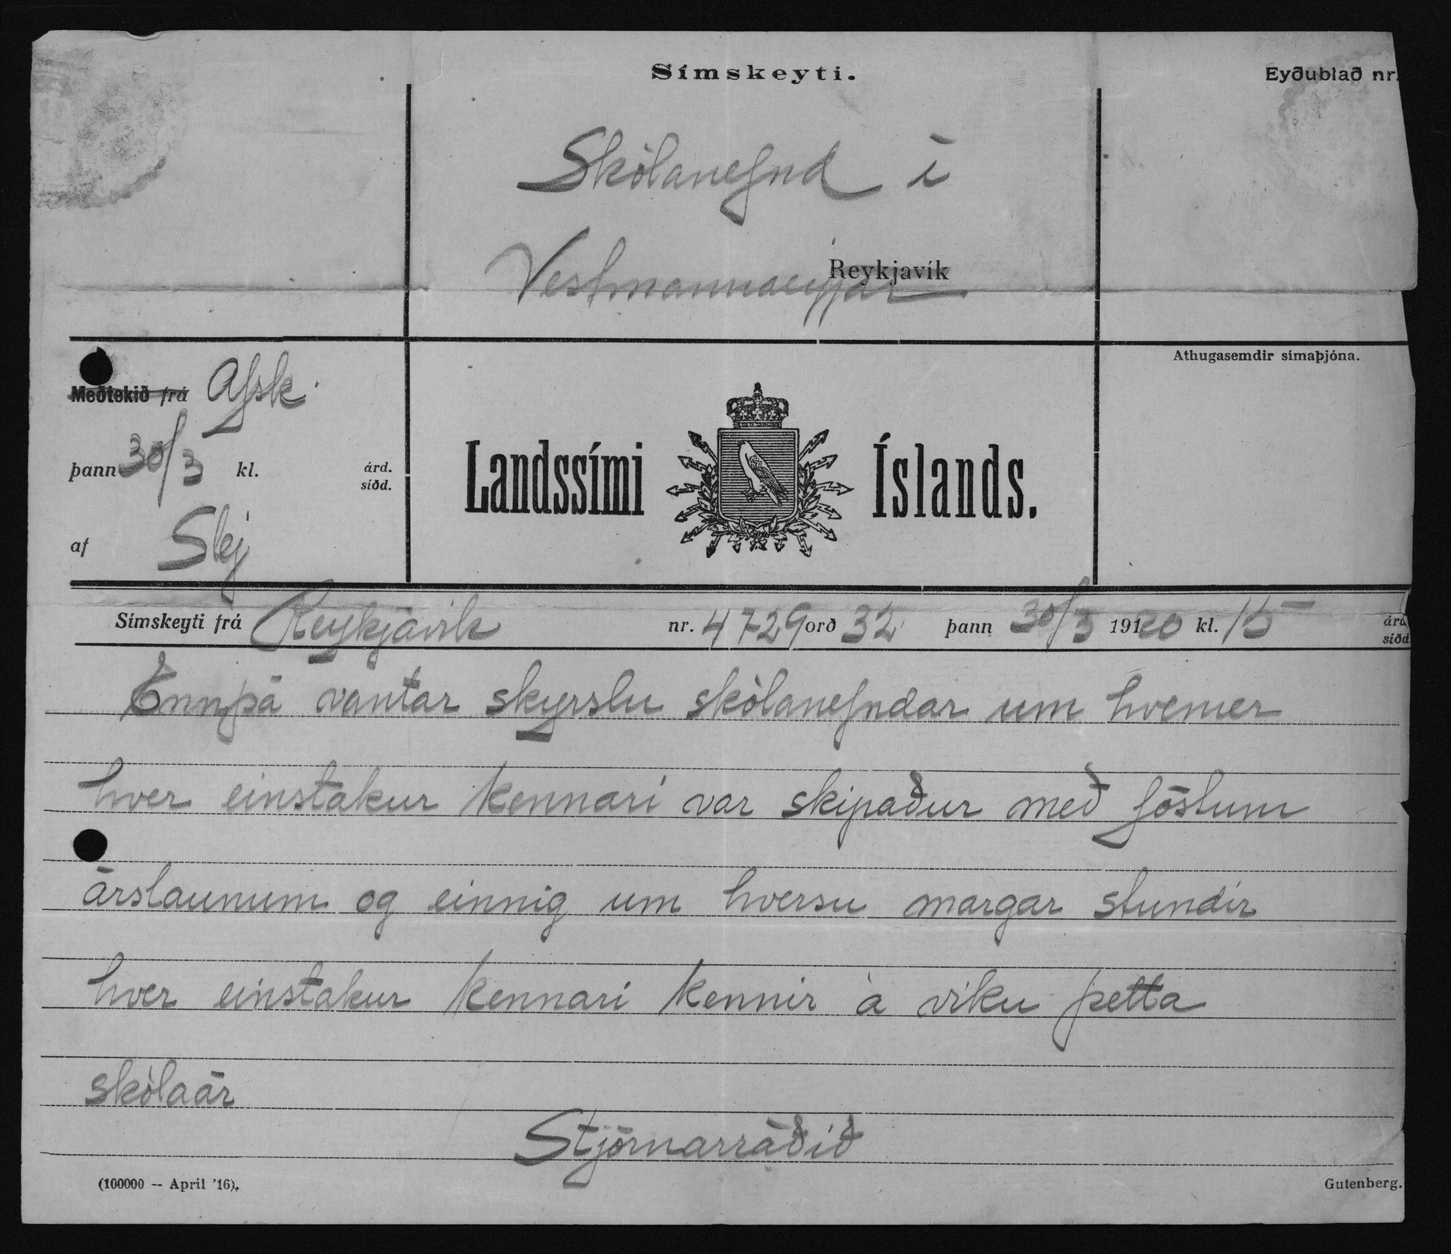 Símskeyti.
Eyðublað nr.
Skólanefnd í
Vestmannaeyjar
Reykjavík
Athugasemdir símaþjóna.
Meðtekið frá Afsk.
þann 30/3 kl. árd. síðd.
Landssími Íslands.
af
Símskeyti frá Reykjavik nr. 4729 orð 32 þann 30/3 1920 kl. 15 árd. síðd
Ennþá vantar skyrslu skólanefndar um hvenær
hver einstakur kennari var skipaður með föstum
árslaunum og einnig um hversu margar stundir
hver einstakur kennari kennir á viku þetta
skólaár
Stjórnarráðið
(100000 -- April '16).
Gutenberg.